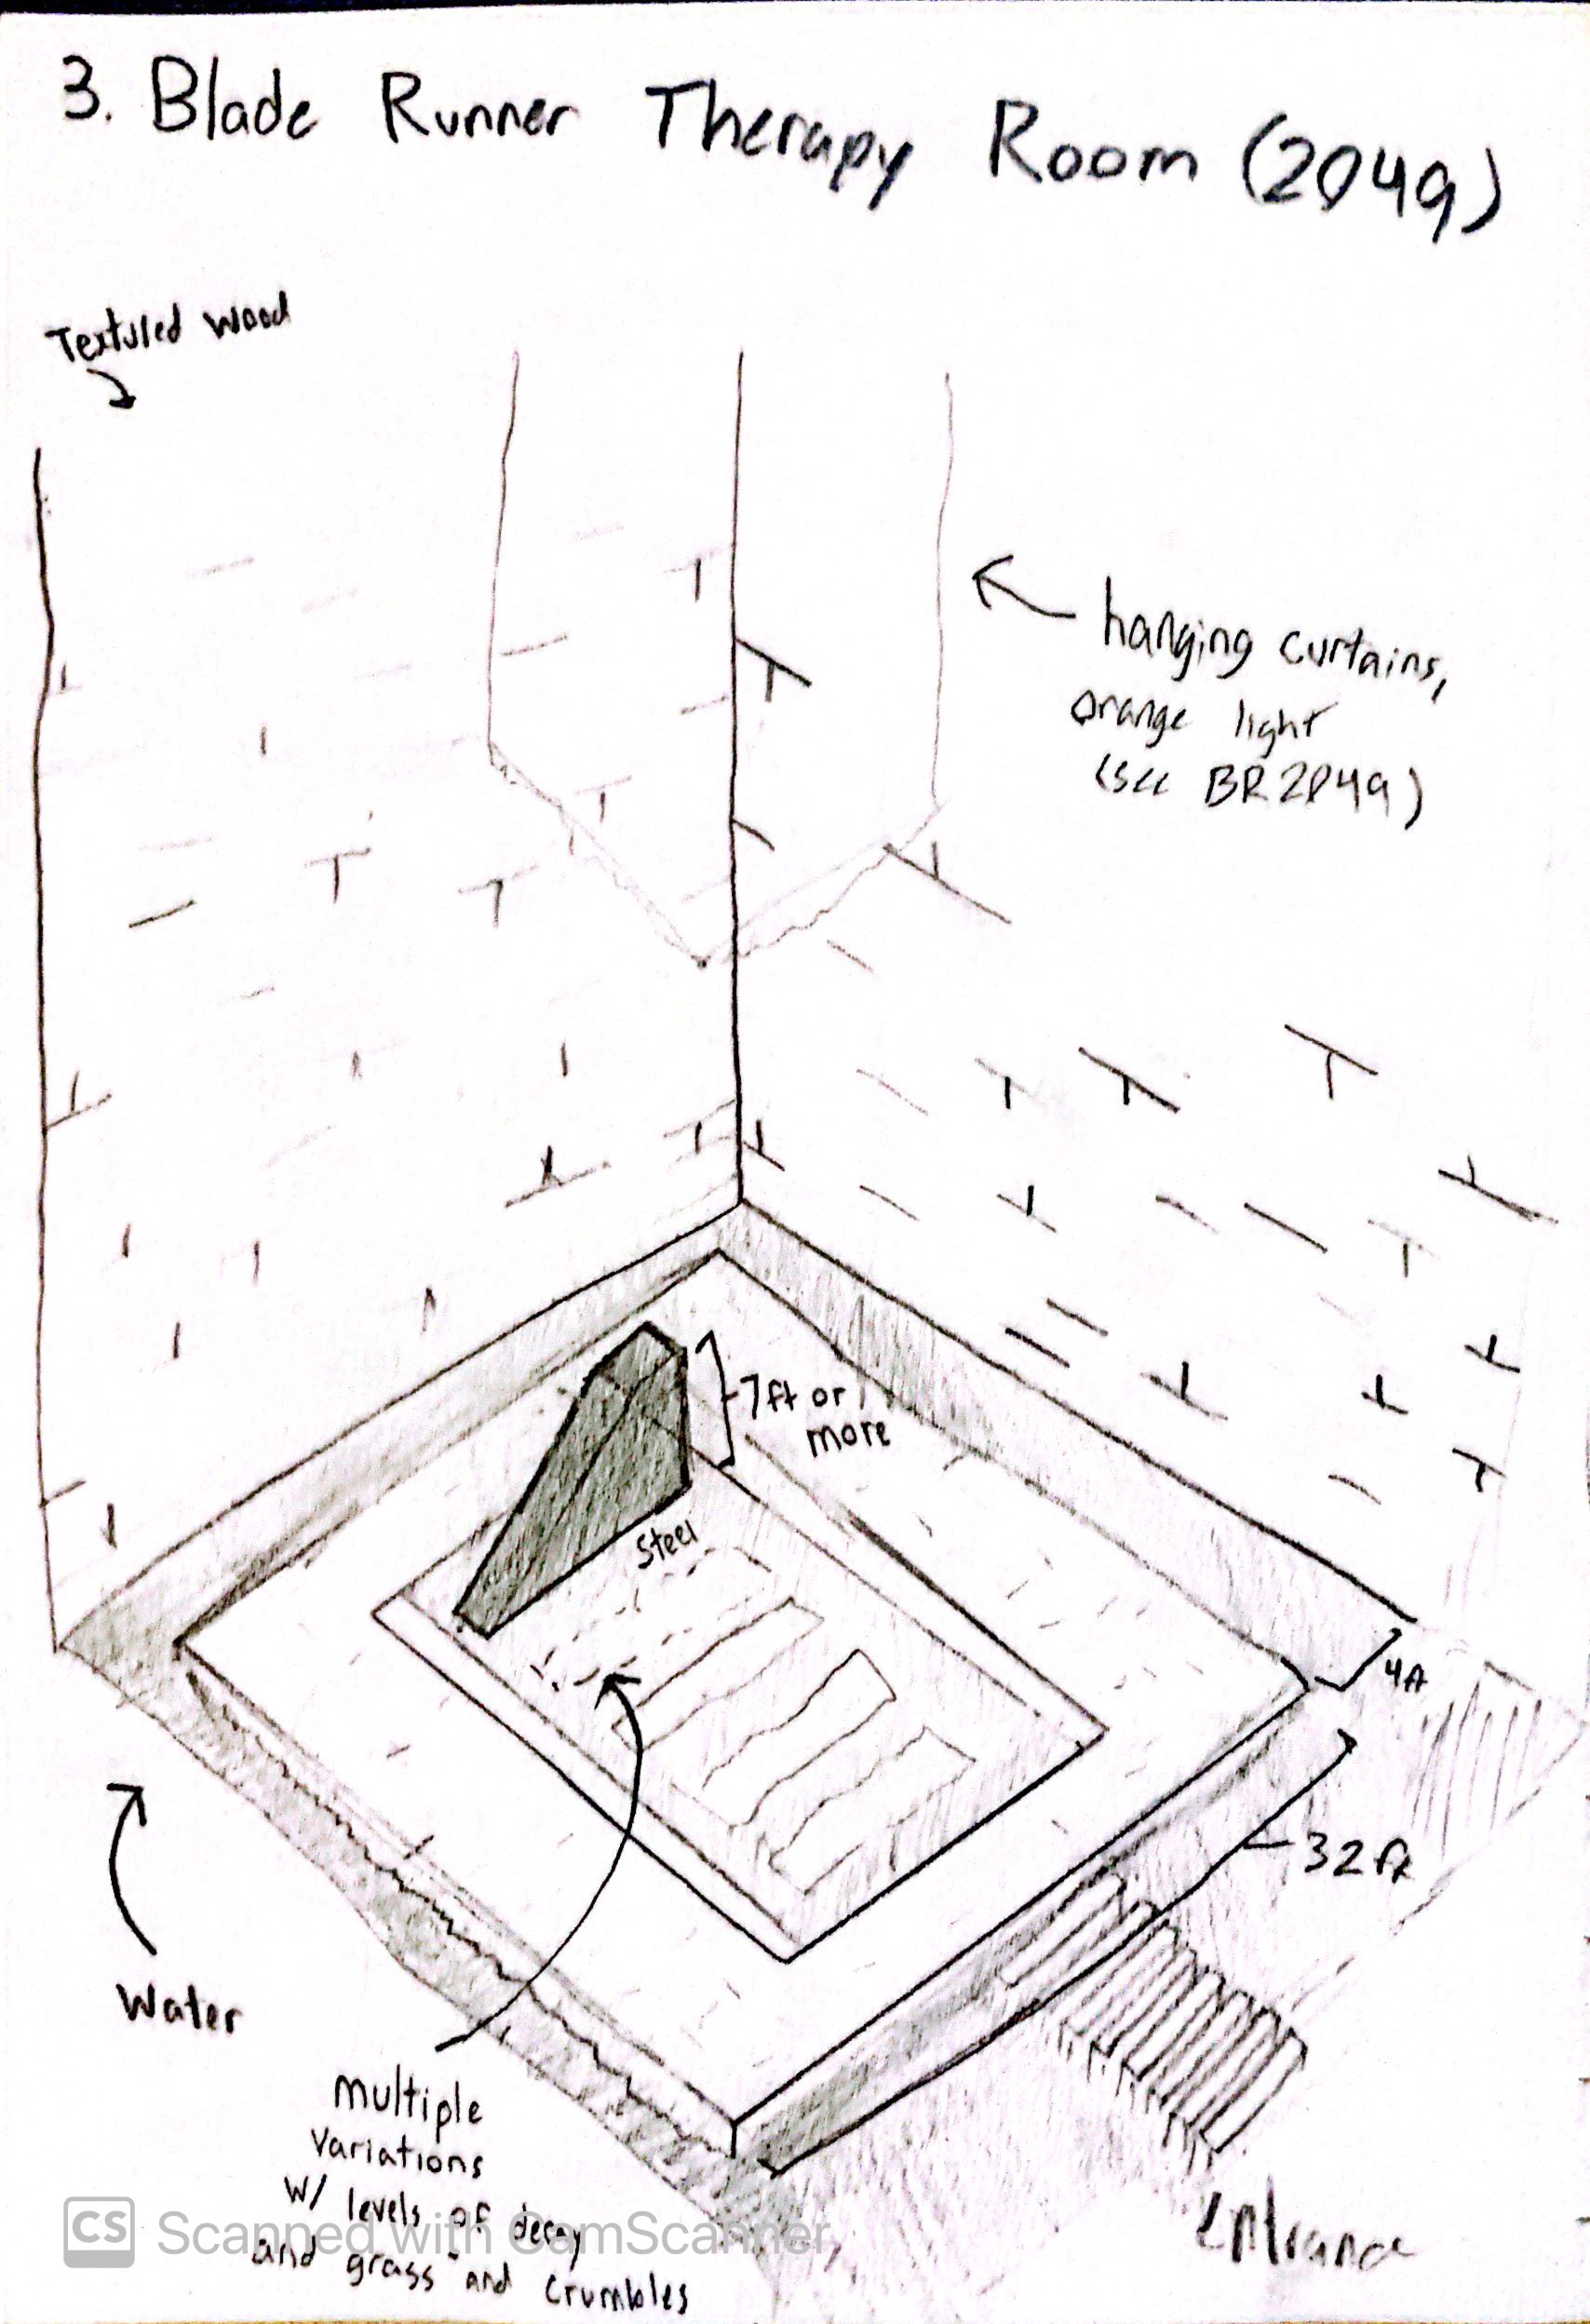 3. Blade Runner Therapy Room (2049)
Textured wood
hanging curtains,
orange light
(see BR2049)
7ft or
more
Steel
4ft
32ft
Water
multiple
variations
w/ levels of decay
and grass and crumbles
entrance
CS Scanned with CamScanner